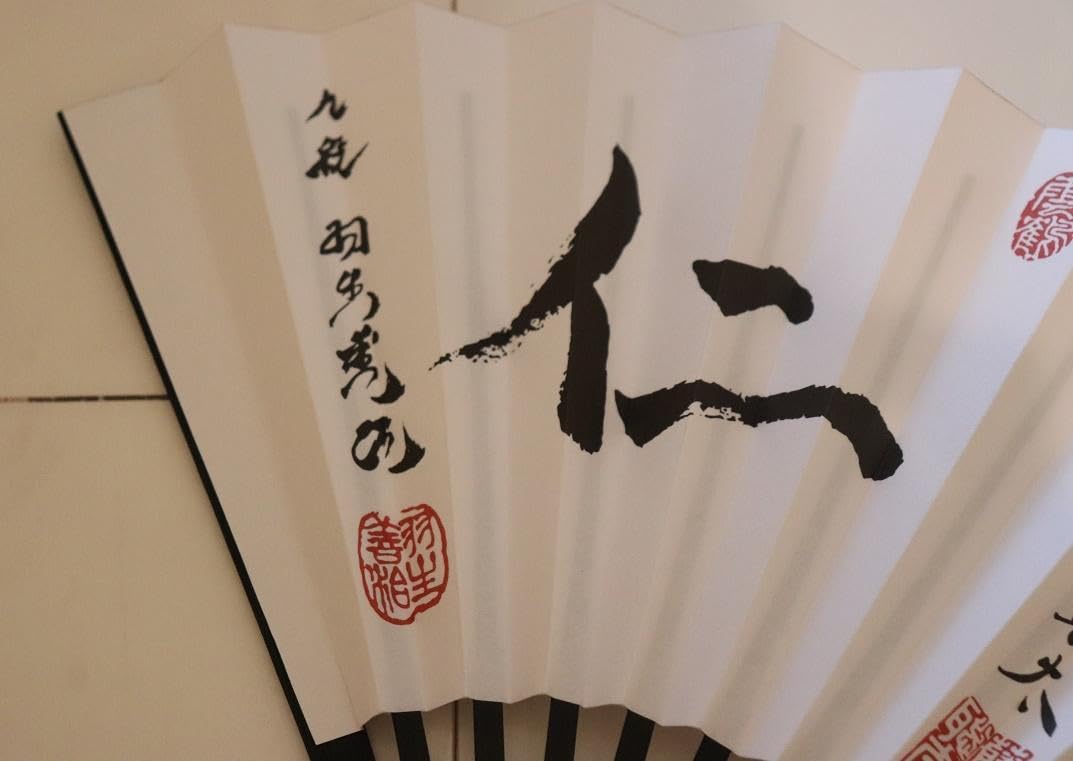 仁
九段 羽生善治
羽生
善治